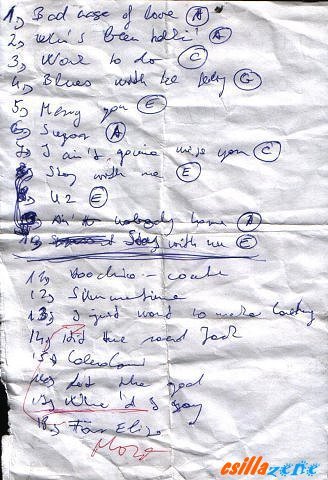 1, Bad case of love A
2, Who's been talkin' A
3, Work to do C
4, Blues with the G
5, Mercy you E
6, Sugar A
7, I ain't gonna miss you C
8, Stay with me E
9, U2 E
Ain't nobody home A
Stay with me E
11, Hoochie-coochie
12, Summertime
13, I just want to make
14, Hit the road Jack
15,
16, Let the good
17, What'd I say
18, Für Elise
More
csillazene